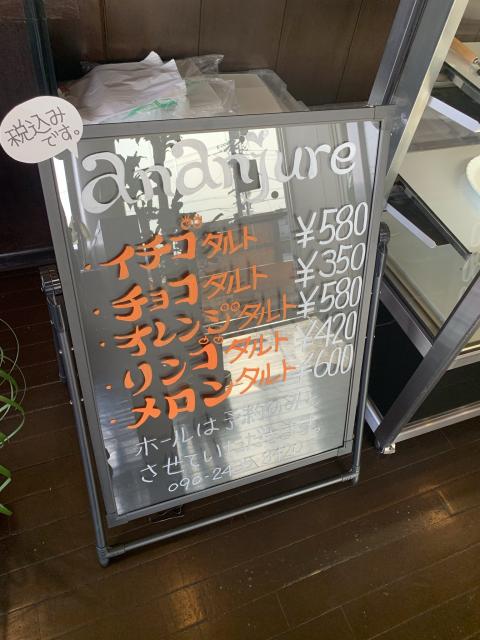 税込み
です。
ananjure
・イチゴタルト ¥580
・チョコタルト ¥350
・オレンジタルト ¥580
・リンゴタルト ¥420
・メロンタルト ¥600
ホールは予約のみ
させていただきます。